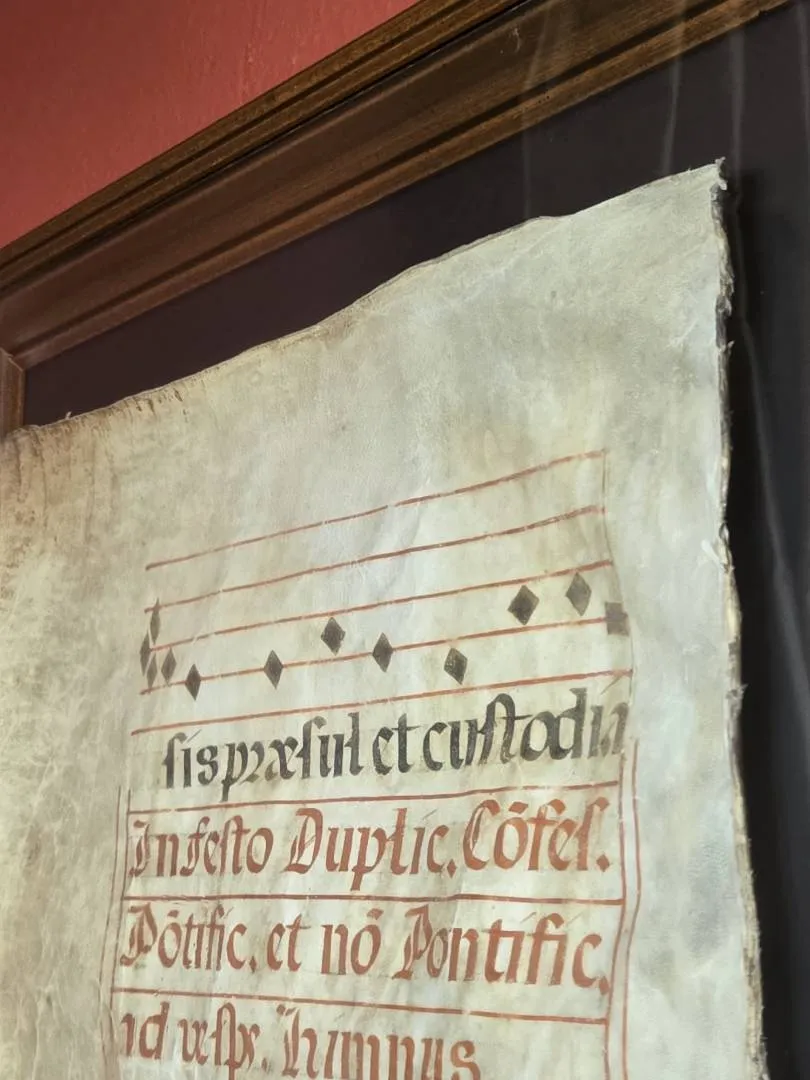 sis præsul et custodia
In festo Duplic. Cōfes.
Pōtific. et nō Pontific.
ad vesps. Himnus